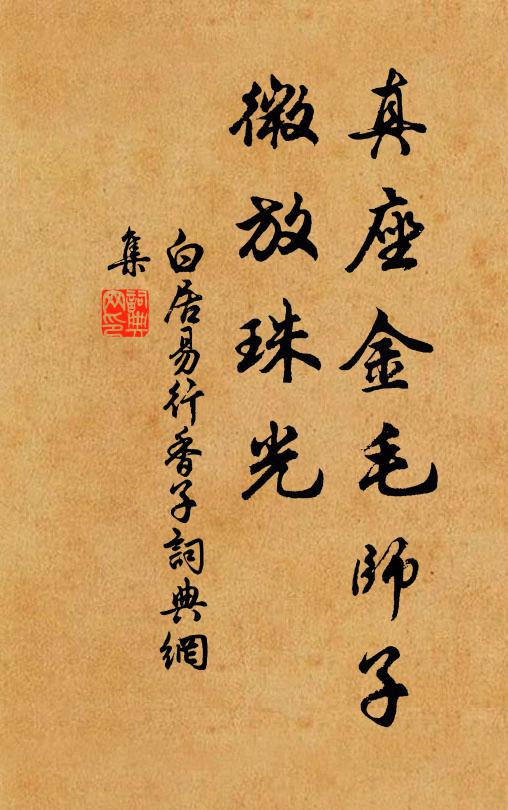 真座金毛師子
微放珠光
白居易行香子詞典網
集
詞典
网印